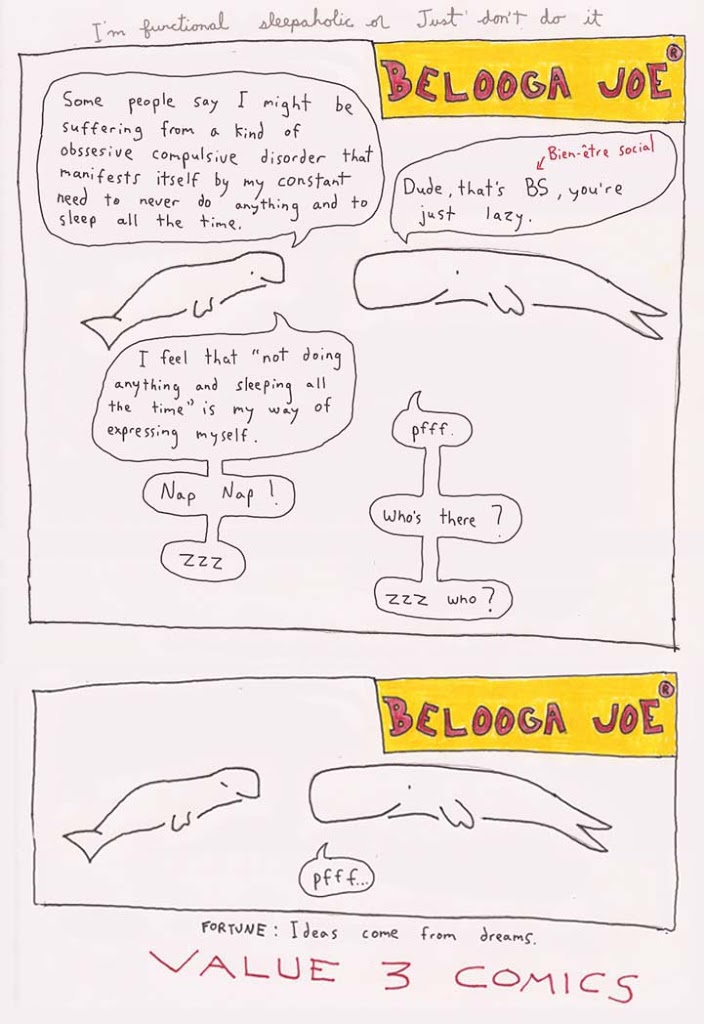 I'm functional sleepaholic or Just don't do it
BELOOGA JOE®
Some people say I might be
suffering from a kind of
obssesive compulsive disorder that
manifests itself by my constant
need to never do anything and to
sleep all the time.
Bien-être social
Dude, that's BS, you're
just lazy.
I feel that "not doing
anything and sleeping all
the time" is my way of
expressing myself.
pfff.
Nap Nap!
Who's there?
zzz
zzz who?
BELOOGA JOE®
pfff...
FORTUNE: Ideas come from dreams.
VALUE 3 COMICS